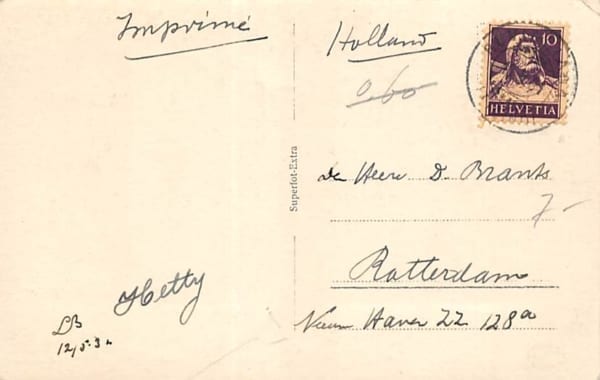 Imprimé
Holland
10
HELVETIA
0.60
Superfot-Extra
den Heere D. Brants
7-
Rotterdam
Nieuw Haven ZZ 128a
Hetty
LB
12/5.32